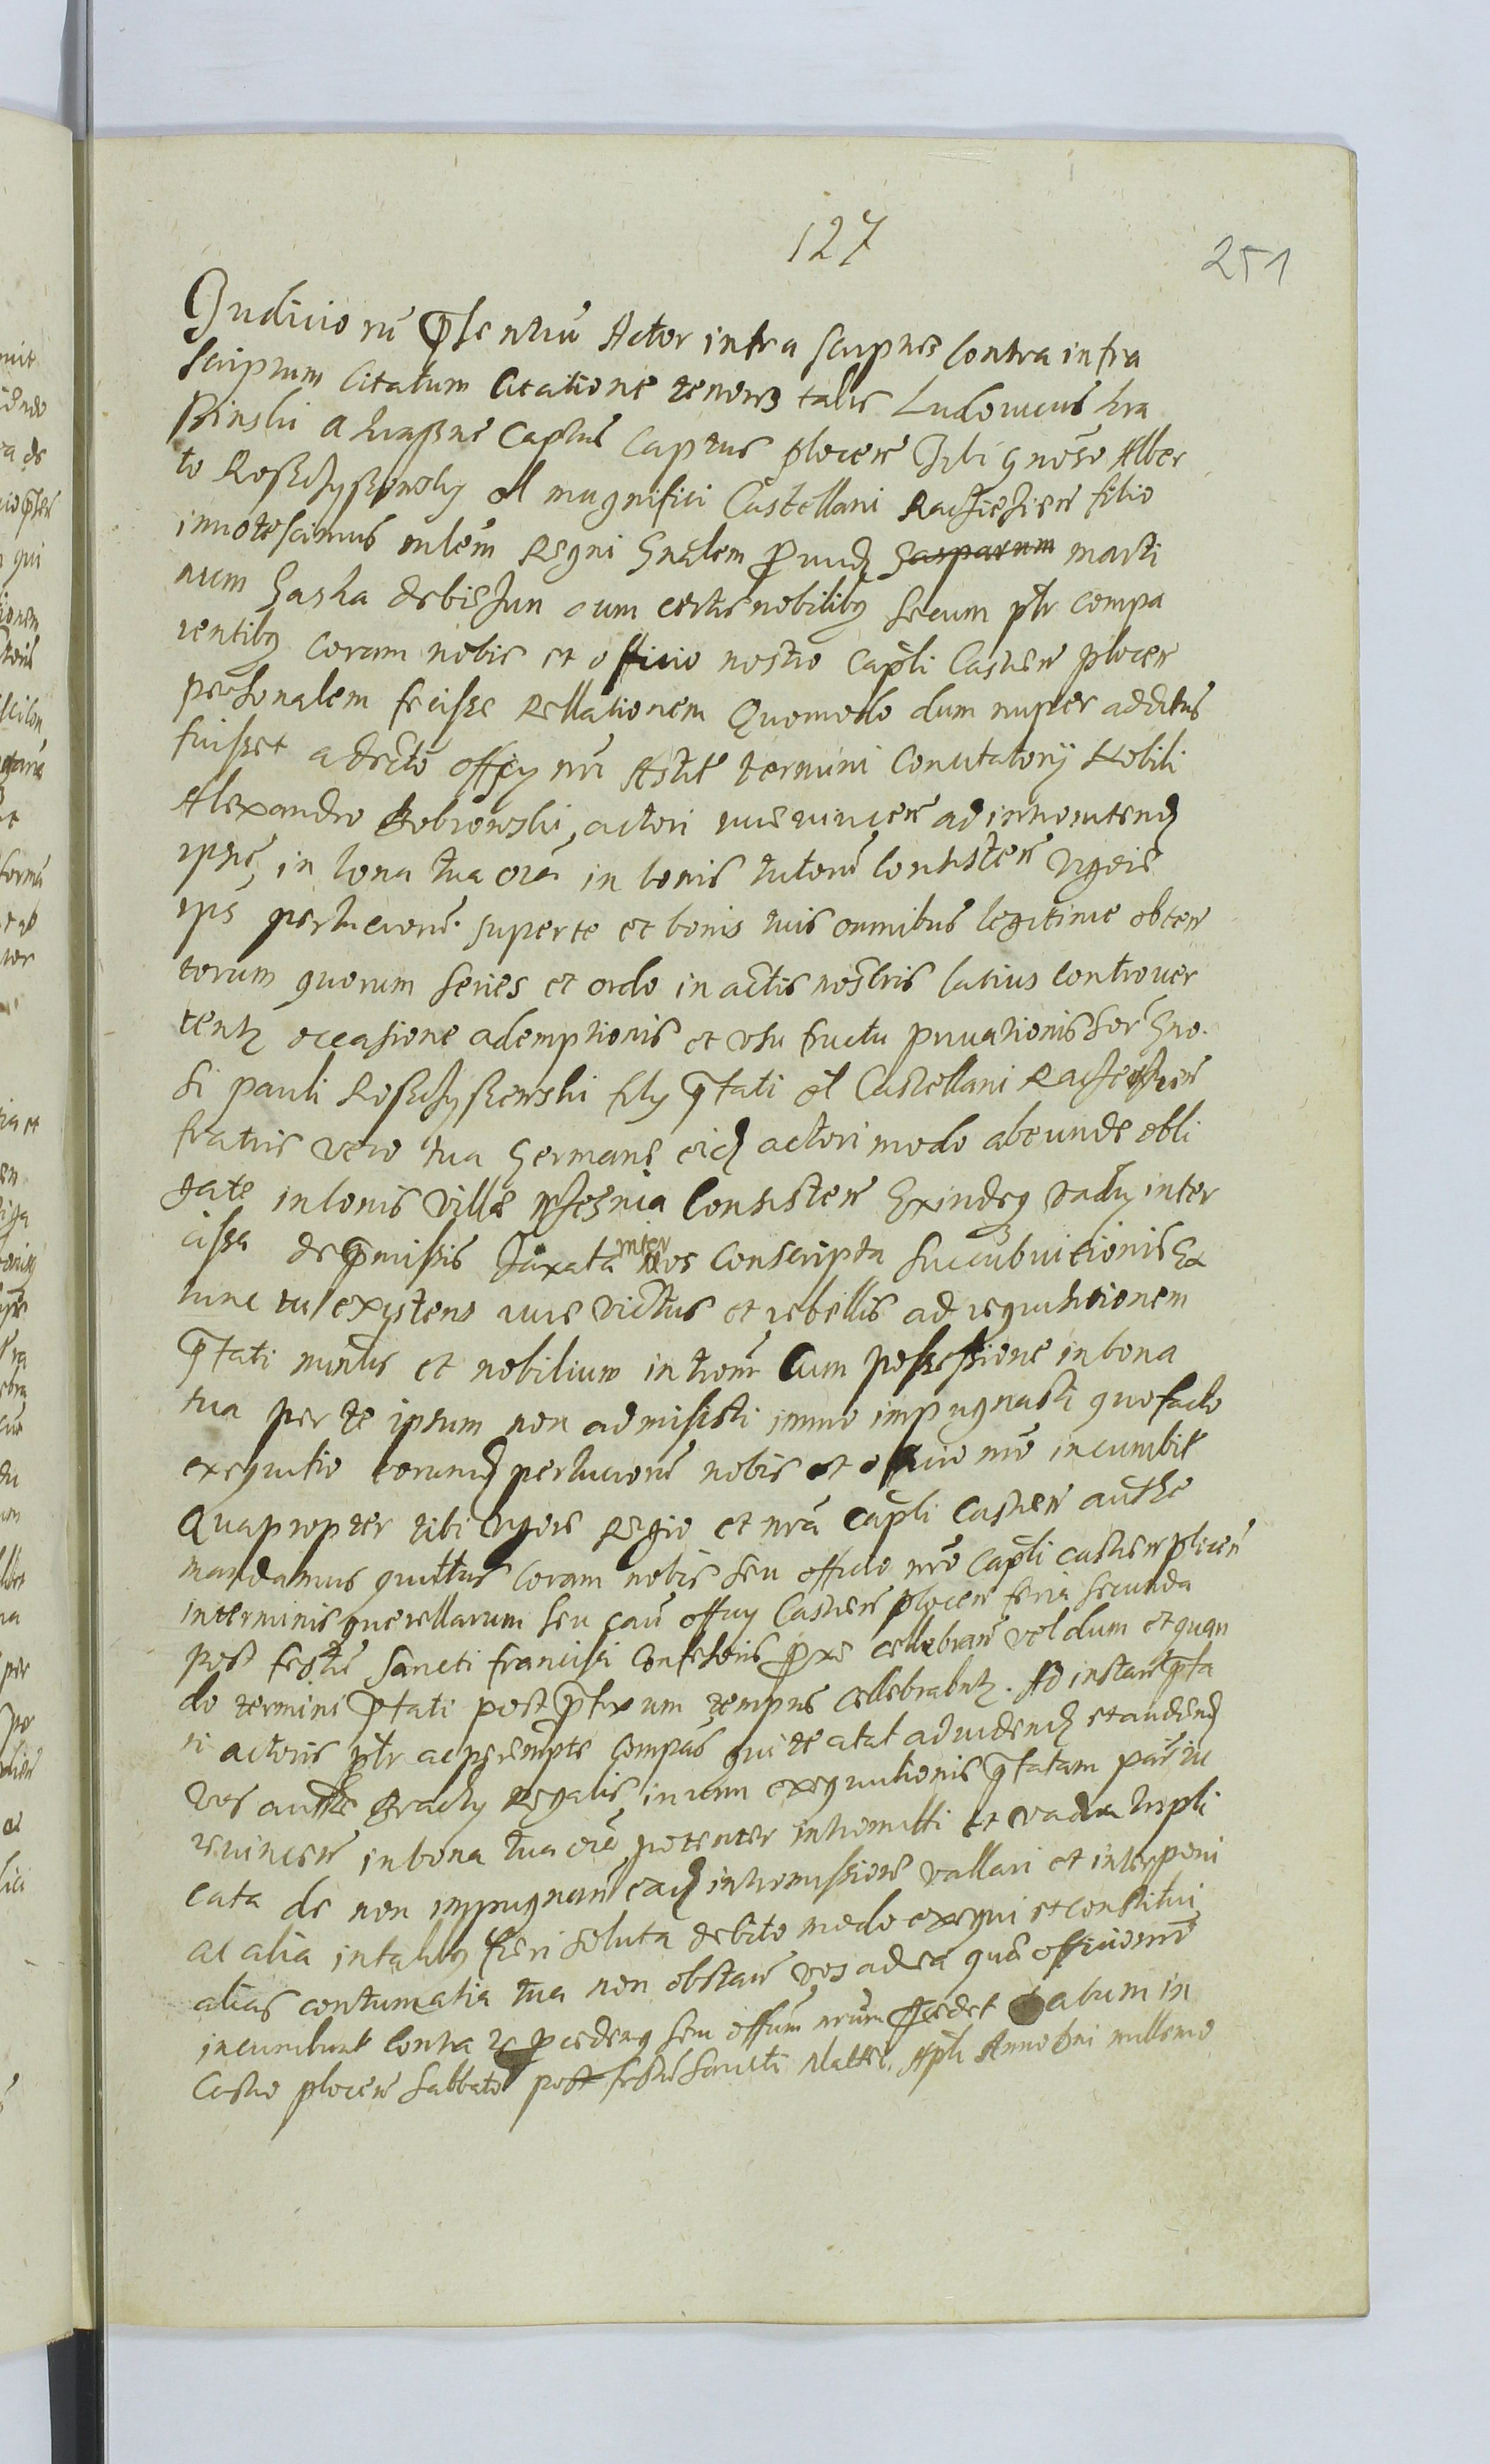 127
251
Judicio rū p̄sentiū Actor infra scriptus contra infra
scriptum citatum citatione tenoris talis Ludovicus kra
sinski a krasne Caplus captus plocen Tibi gnōso Alber
to Rosczyszewsky ol magnifici Castellani Raciezien filio
innotescimus mlēm Regni Gnalem prvid Gasparum marti
num Gaska de biezun cum certis nobilibꝫ secum ptr compa
rentibꝫ coram nobis et officio nostro capli Castren plocen
personalem fecisse Rellationem Quomodo dum nuper additus
fuisset a decto officy nri Astit termini concitatorij Nobili
Alexandro Bobrowski, actori iure vincen ad intromittend
ipsū, in bona tua oīa in bonis tutorū consisten vigore
ips perlucrorū super te et bonis tuis omnibus legitime obten
torum quorum series et ordo in actis nostris latius controver
tent occasione ademptionis et usu fructu privationis sor Gno
si pauli Rosczyszewski fily p̄tati ol Castellani Raciezien
fratris vero tua germane eid actori modo abeunde obli
gate in bonis villæ Consisten Exindeqꝫ vadij inter
cissa de p̄missis taxata inter vos conscripta succubuitionis Ex
tunc tu existens iure victus et rebellis ad requisitionem
p̄tati minlis et nobilium introm̄ Cum possessione in bona
tua per te ipsum non admisisti immo impugnasti quo facto
exequutio eorund perlucrorū nobis et officio nrō incumbit
Quapropter tibi vigore Regio et nrā capli Castren authe
mandamus quattus coram nobis seu officio nrō capli castren plocen
in terminis querellarum seu cau officy Castren plocen feria secunda
post festū Sancti francisci Confessoris prox cellebran vel dum et quan
do termini p̄tati post p̄fixum tempus cellebrabūt. Ad instan p̄ta
ti actoris ptr ac perempte compās qui te citat ad videnд et audienд
vos authe Brachy Regalis, in vim exequutionis p̄tatam pār iu
re vincen in bona tua oīa potenter intromitti et vadia tripli
cata de non impugnan ead intromissione vallari et interponi
ac alia in talibꝫ fieri soluta debito modo exequi et constitui
alias contumatia tua non obstan vos ad ea quæ officio nrō
incumbunt contra te procedemꝫ seu offum nrum p̄cedet Datum in
Castro plocen Sabbato post festū Sancti Matthei Apli Anno Dni millemo